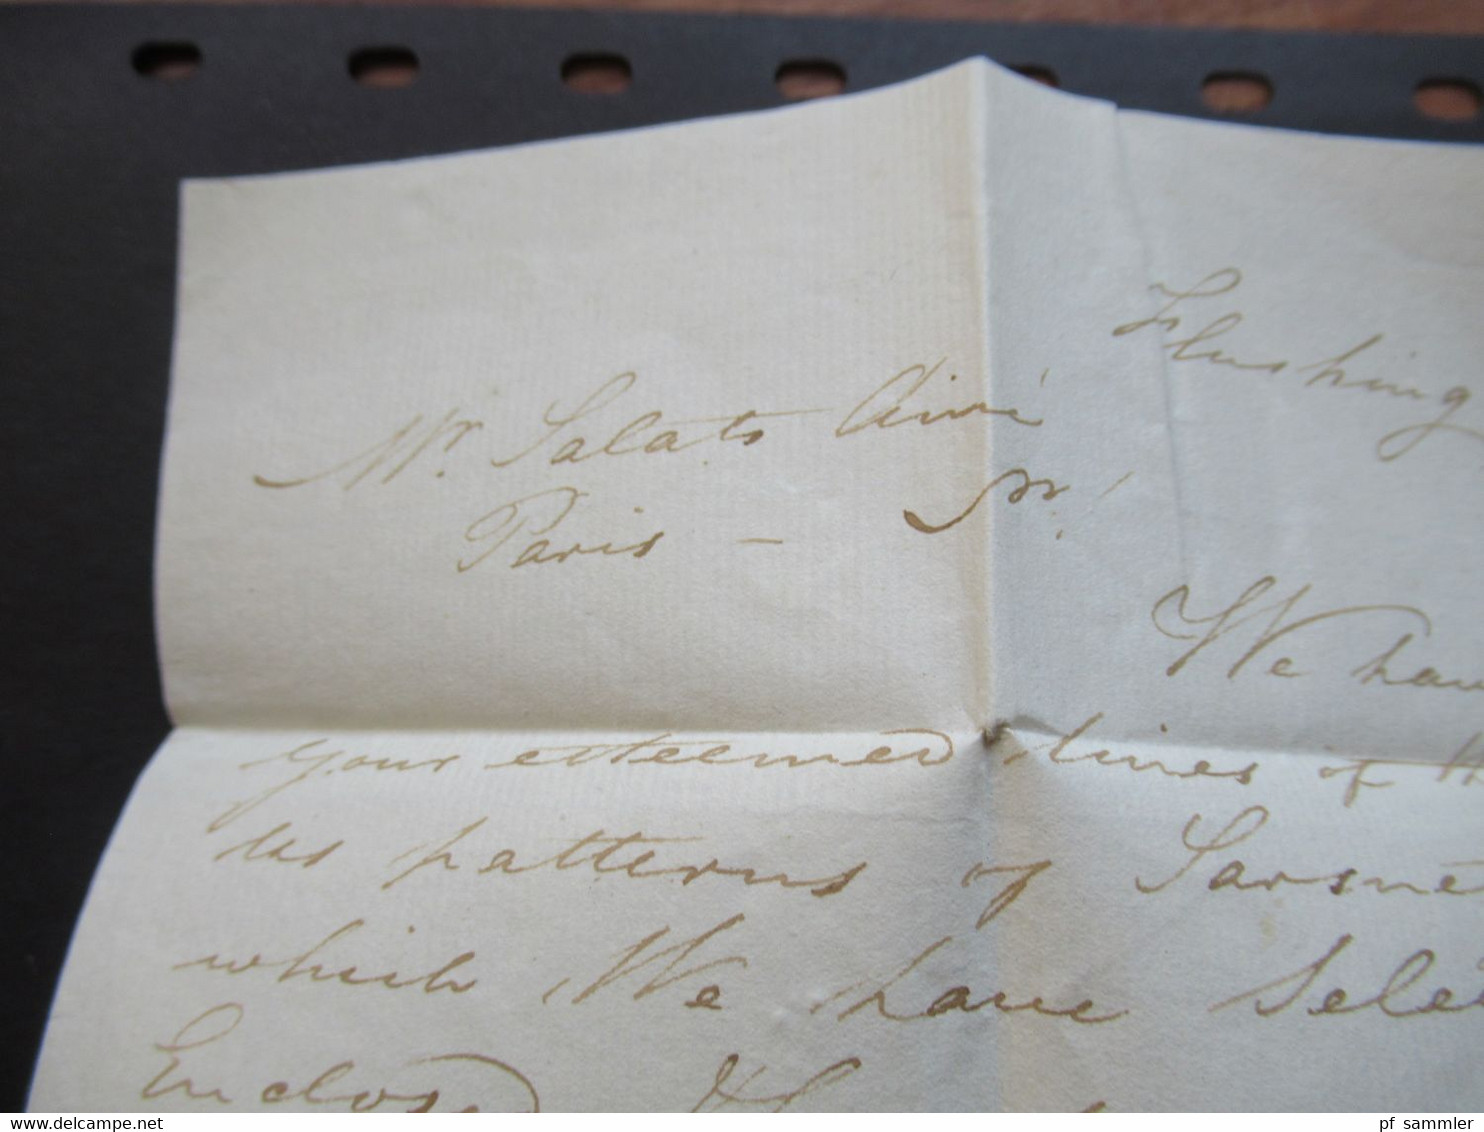 Flushing
Mr. Salats Aimé
Paris –
We have
your esteemed lines of th
us patterns of Sarsnet
which We have Sele
Enclosed
pf sammler